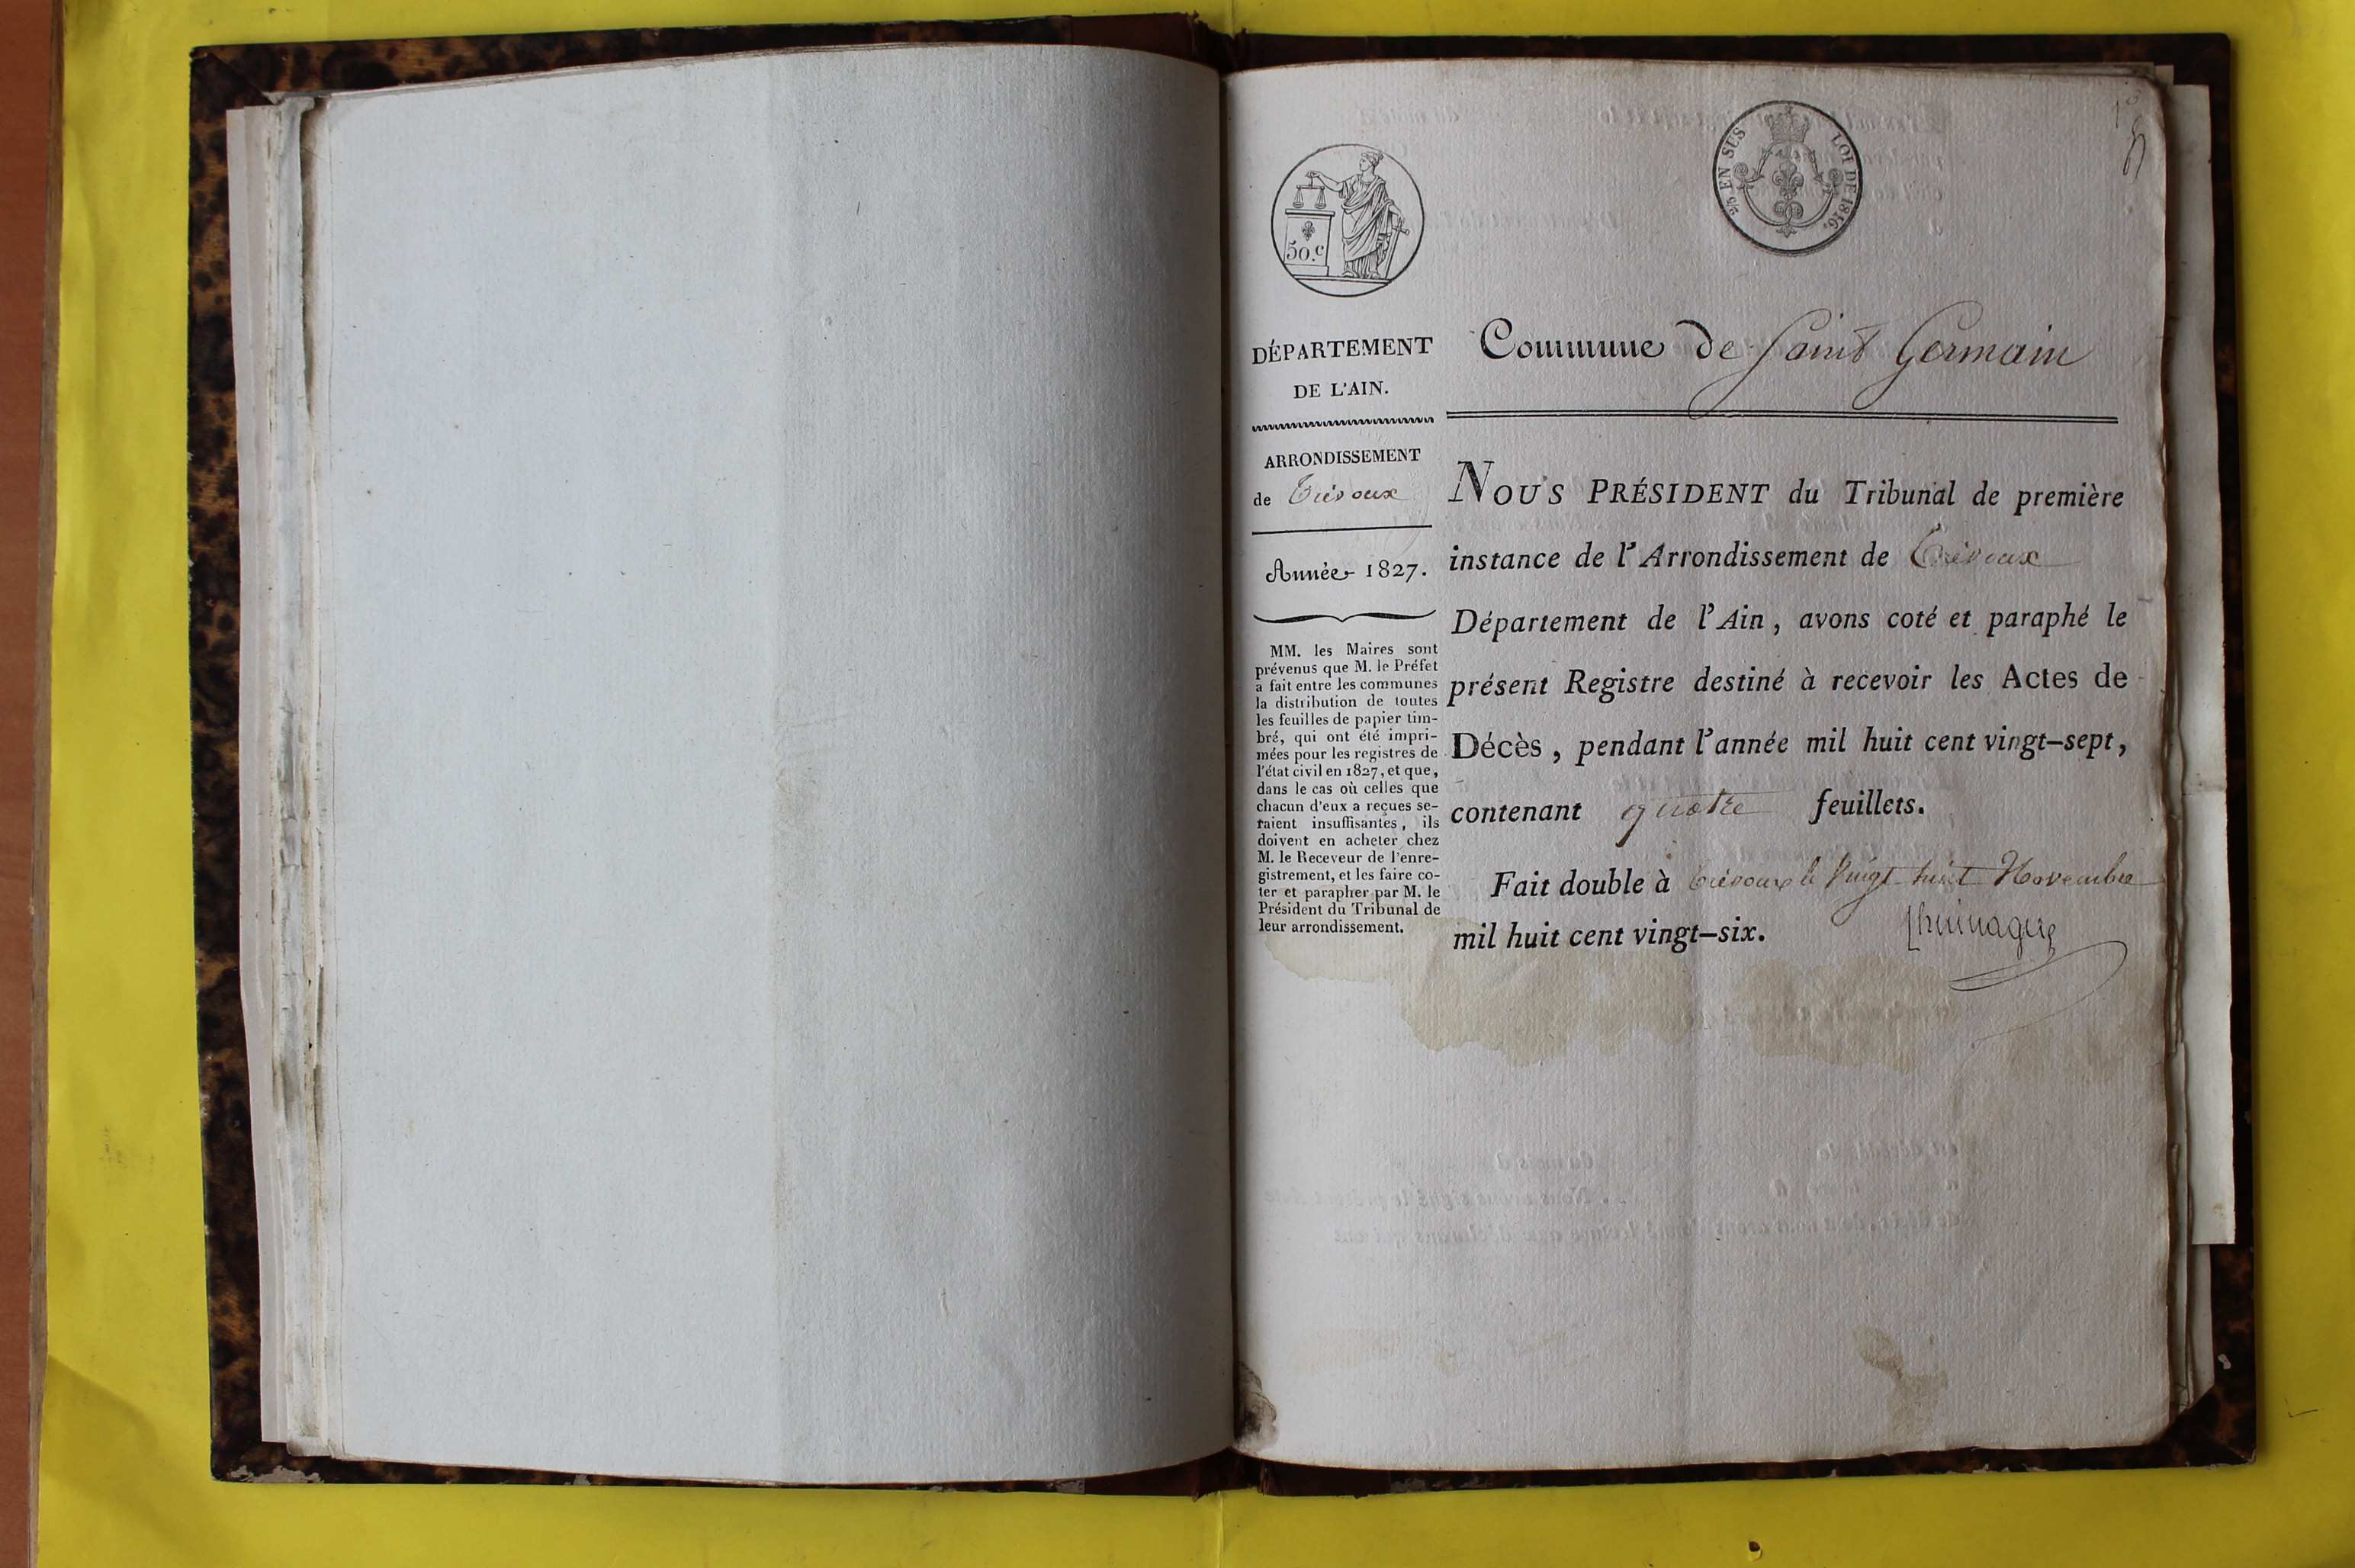 2/5 EN SUS LOI DE 1816.
50.c
DÉPARTEMENT
DE L'AIN.
ARRONDISSEMENT
de Trévoux
Année 1827.
MM. les Maires sont
prévenus que M. le Préfet
a fait entre les communes
la distribution de toutes
les feuilles de papier tim-
bré, qui ont été impri-
mées pour les registres de
l'état civil en 1827, et que,
dans le cas où celles que
chacun d'eux a reçues se-
raient insuffisantes, ils
doivent en acheter chez
M. le Receveur de l'enre-
gistrement, et les faire co-
ter et parapher par M. le
Président du Tribunal de
leur arrondissement.
Commune de Saint Germain
NOUS PRÉSIDENT du Tribunal de première
instance de l'Arrondissement de Trévoux
Département de l'Ain, avons coté et paraphé le
présent Registre destiné à recevoir les Actes de
Décès, pendant l'année mil huit cent vingt-sept,
contenant quatre feuillets.
Fait double à Trévoux le Vingt huit Novembre
mil huit cent vingt-six.